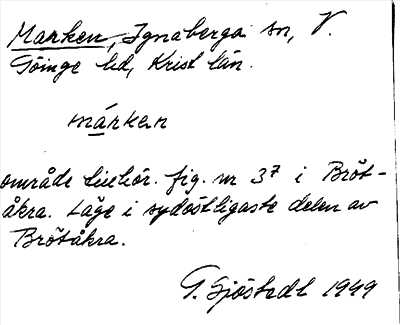 Marken, Ignaberga sn, V.
Göinge hd, Krist län.
márken
område tillhör. fig. nr 3⁷ i Bröt-
åkra. Läge i sydöstligaste delen av
Brötåkra.
G. Sjöstedt 1949